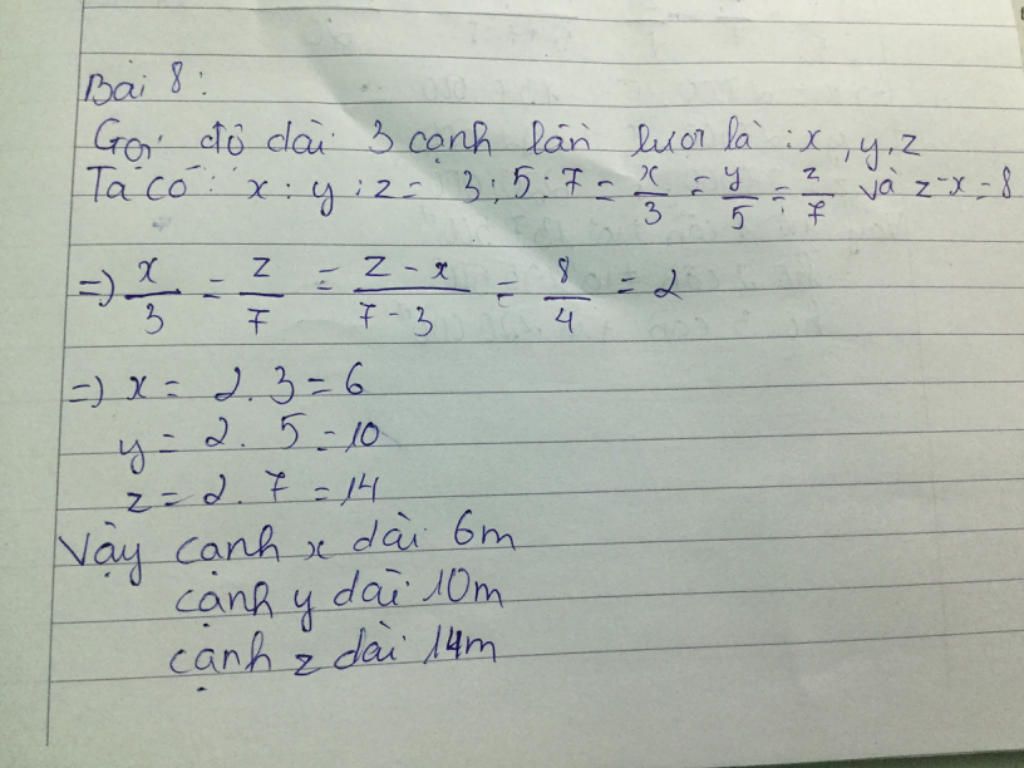 Bài 8:
Gọi độ dài 3 cạnh lần lượt là: x, y, z
Ta có: x : y : z = 3 : 5 : 7 = x/3 = y/5 = z/7 và z - x = 8
=) x/3 = z/7 = z - x/7 - 3 = 8/4 = 2
=) x = 2. 3 = 6
y = 2. 5 = 10
z = 2. 7 = 14
Vậy cạnh x dài 6m
cạnh y dài 10m
cạnh z dài 14m